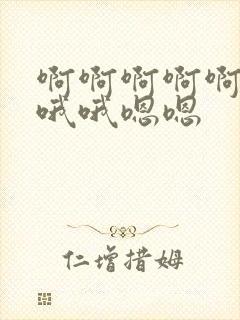 啊啊啊啊啊
哦哦嗯嗯
仁增措姆